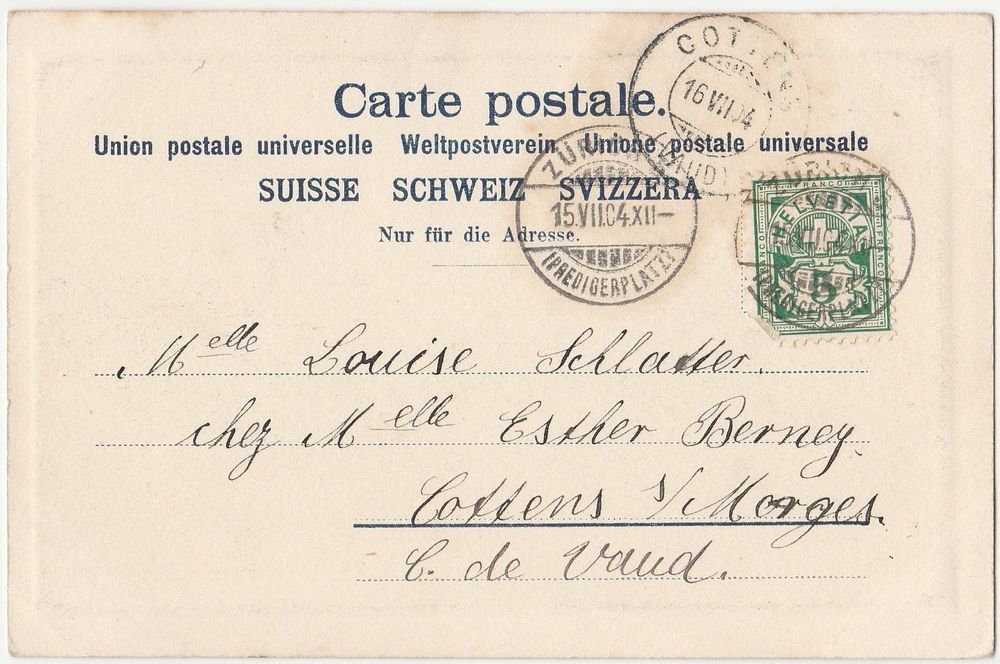 Carte postale.
Union postale universelle Weltpostverein Unione postale universale
SUISSE SCHWEIZ SVIZZERA
Nur für die Adresse.
COTTENS
16 VII.04
(VAUD)
ZÜRICH
15.VII.04.XII–
(PREDIGERPLATZ)
FRANCO
HELVETIA
5
Melle Louise Schlatter.
chez Melle Esther Berney
Cottens s/Morges.
C. de Vaud.